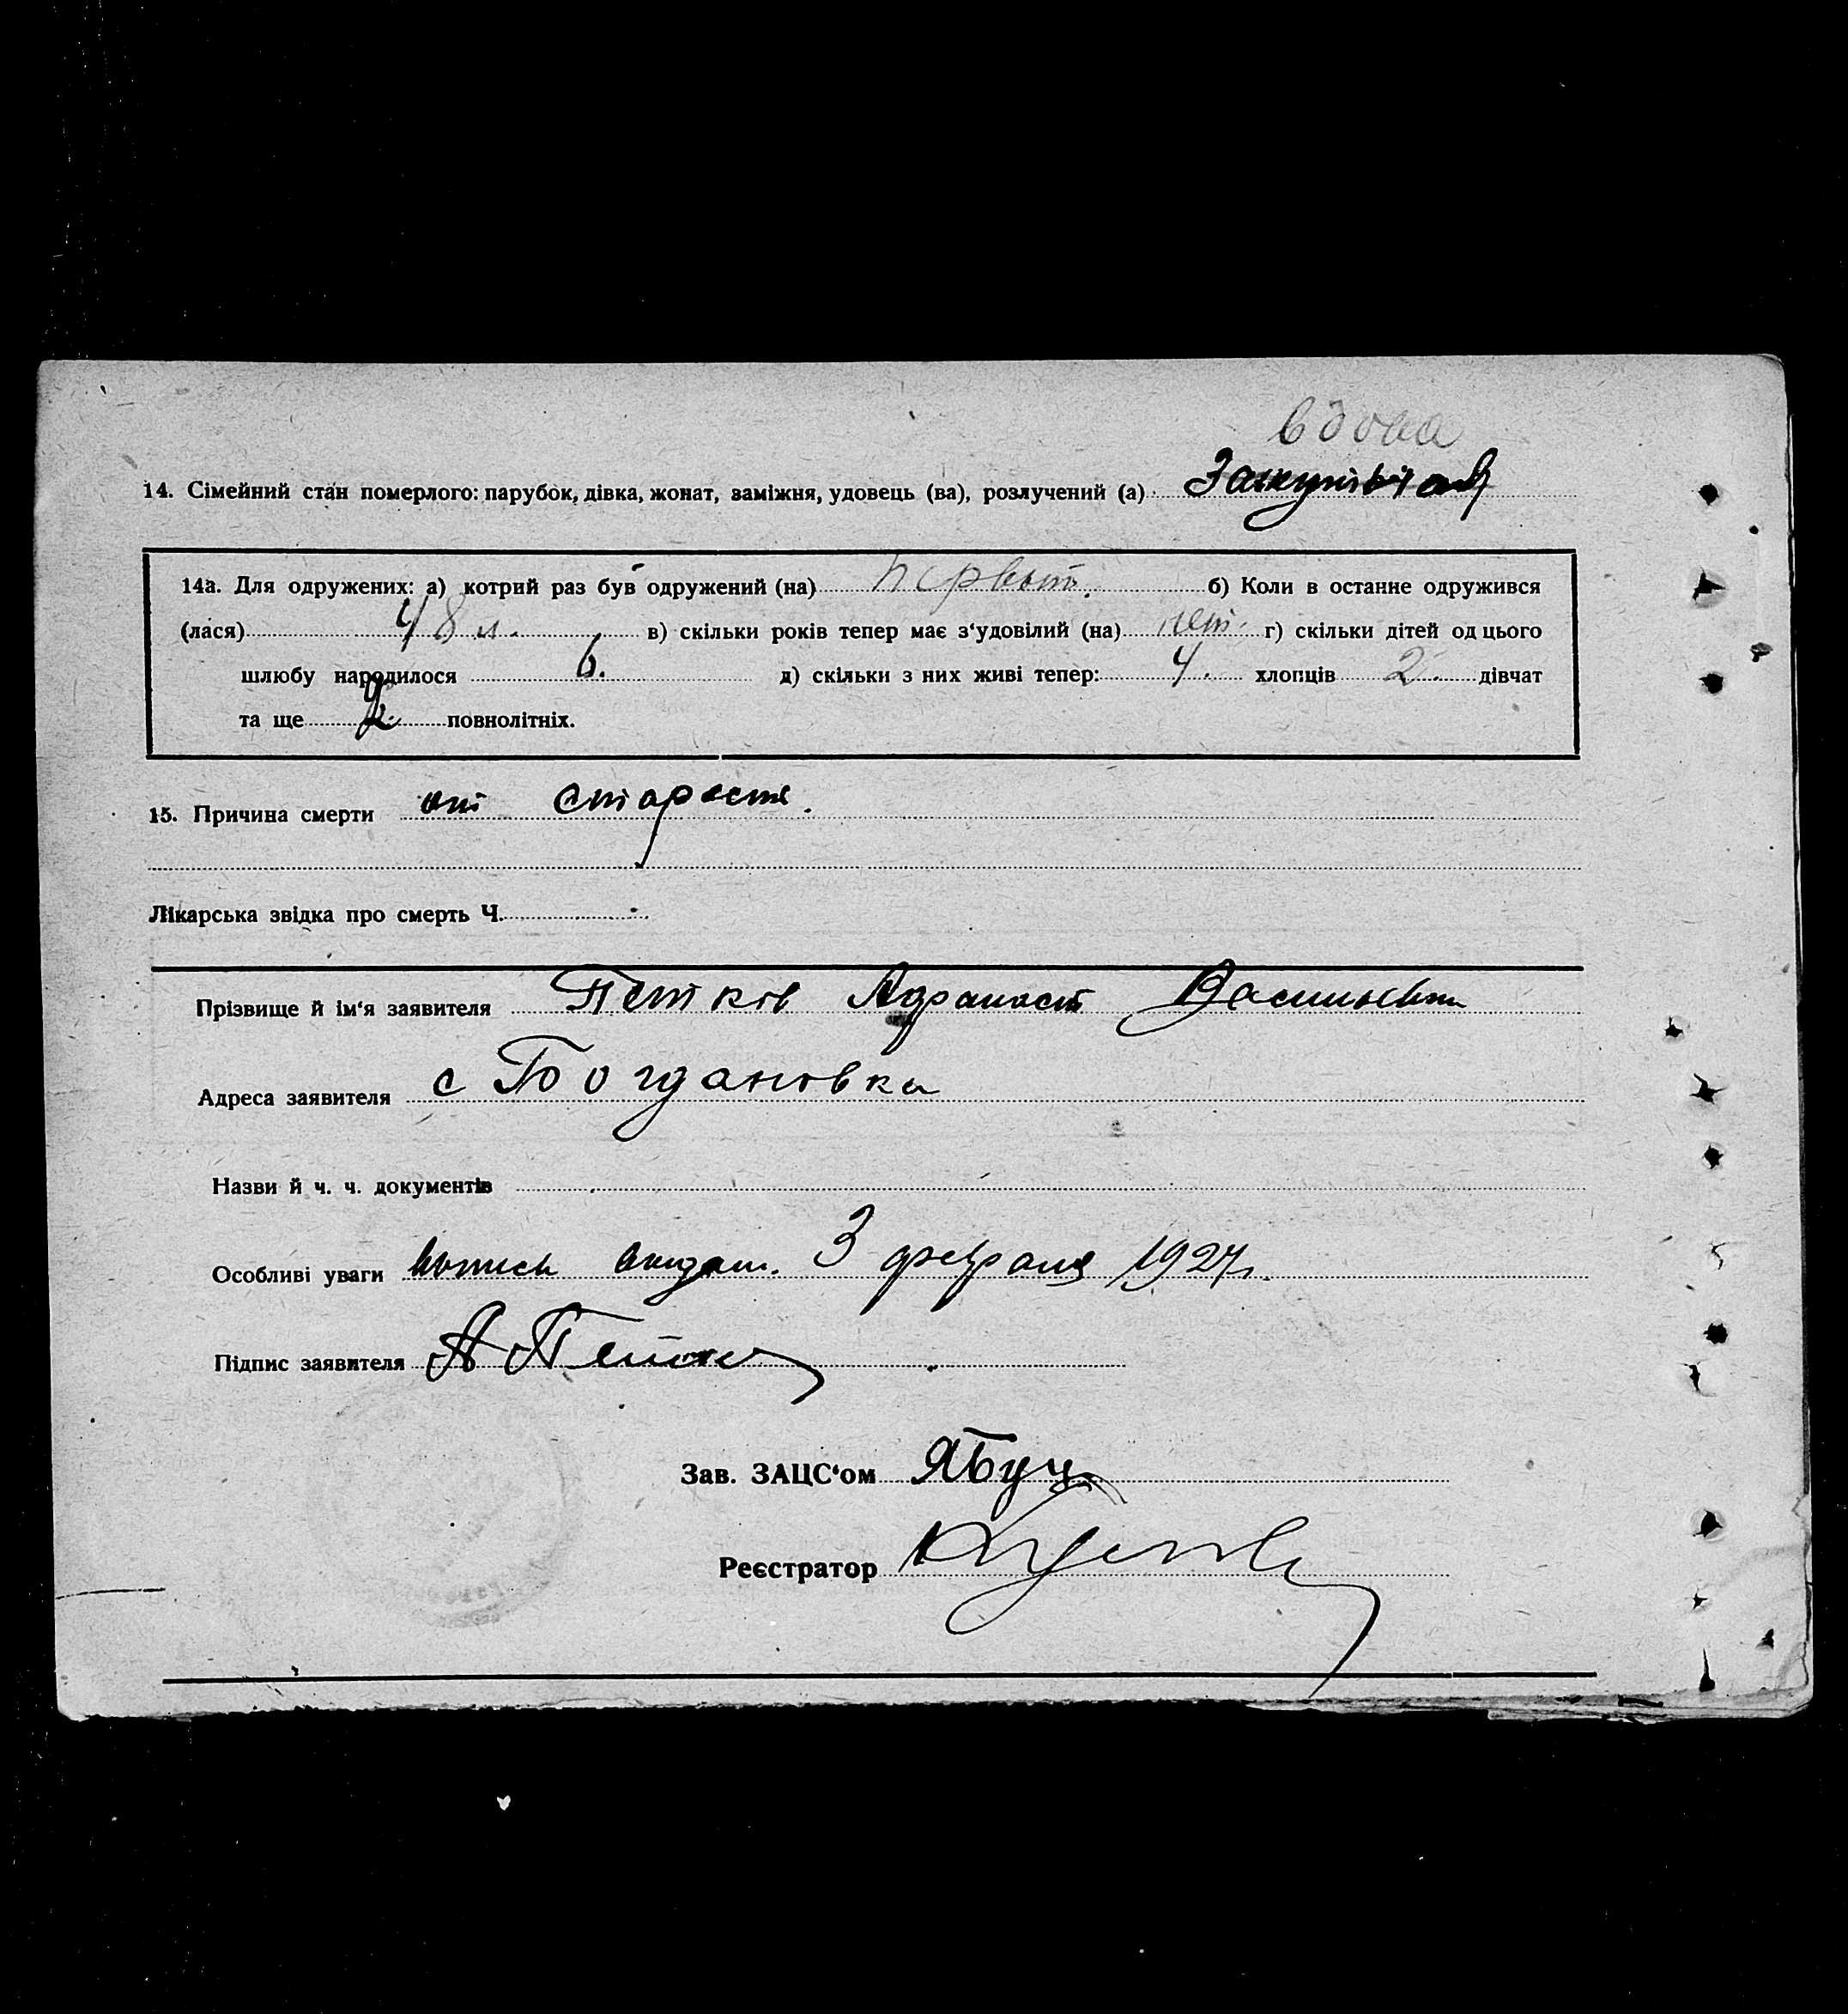 вдова
14. Сімейний стан померлого: парубок, дівка, жонат, заміжня, удовець (ва), розлучений (а)
14а. Для одружених: а) котрий раз був одружений (на) первый. б) Коли в останне одружився
(лася) 48 л. в) скільки років тепер має з‘удовілий (на) нет. г) скільки дітей од цього
шлюбу народилося 6. д) скільки з них живі тепер: 4. хлопців 2. дівчат
та ще повнолітніх.
15. Причина смерти от старости.
Лікарська звідка про смерть Ч.
Прізвище й ім‘я заявителя Петков Васильевич
Адреса заявителя с Богдановка
Назви й ч. ч. документів
Особливі уваги 3 февраля 1927 г.
Підпис заявителя А Петков
Зав. ЗАЦС‘ом
Реєстратор